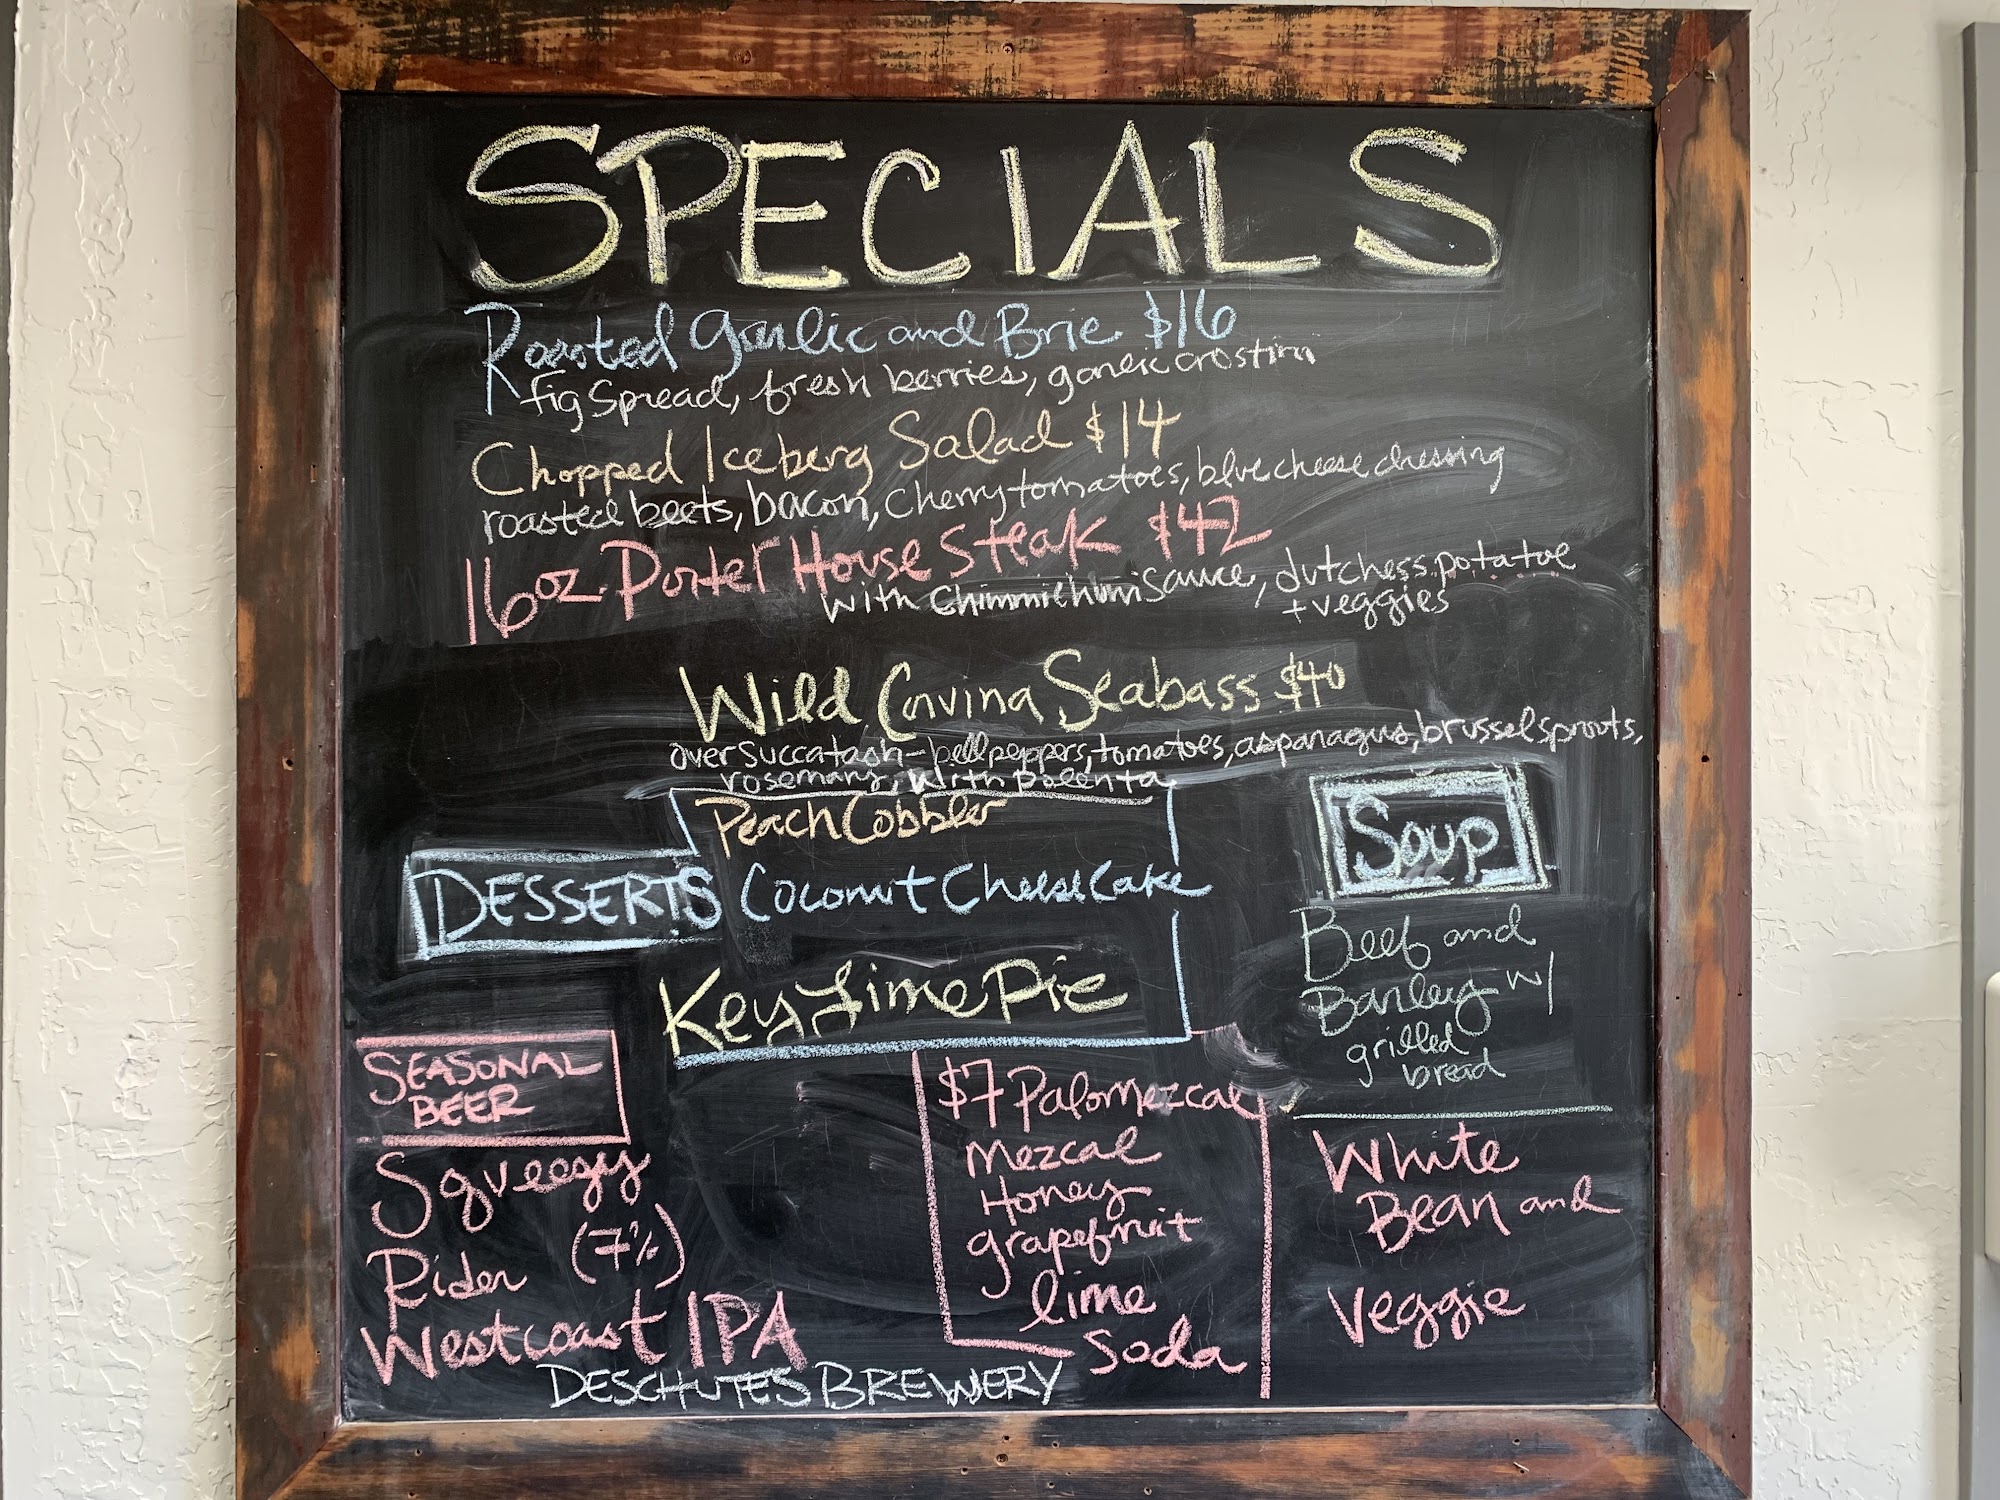 SPECIALS
Roasted Garlic and Brie $16
fig spread, fresh berries, garlic crostini
Chopped Iceberg Salad $14
roasted beets, bacon, cherry tomatoes, blue cheese dressing
16oz Porter House Steak $42
with Chimmichurri Sauce, dutchess potatoe
+ veggies
Wild Corvina Seabass $40
over succatash - bell peppers, tomatoes, asparagus, brussel sprouts,
rosemary, with polenta
DESSERTS
Peach Cobbler
Coconut Cheese Cake
Key Lime Pie
Soup
Beef and
Barley w/
grilled
bread
White
Bean and
Veggie
SEASONAL
BEER
Squeegy
Rider (7%)
Westcoast IPA
DESCHUTES BREWERY
$7 Palomezcal
Mezcal
Honey
grapefruit
lime
Soda